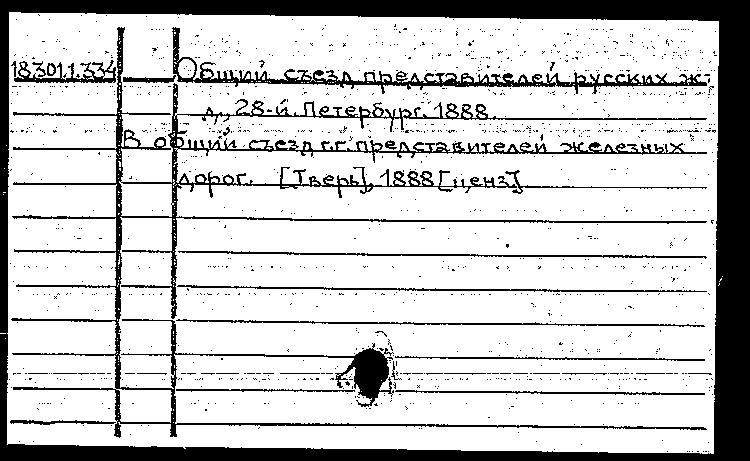 18.301.1.334 Общий съезд представителей русских ж.-
д., 28-й. Петербург. 1888.
В общий съезд г.г. представителей железных
дорог. [Тверь], 1888 [ценз]